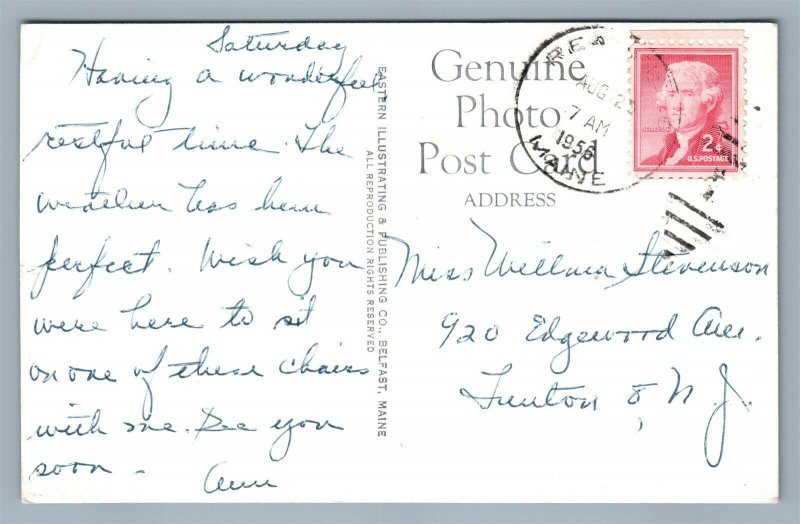 Saturday
Having a wonderful
restful time. The
weather has been
perfect. Wish you
were here to sit
on one of these chairs
with me. See you
soon -
Ann
EASTERN ILLUSTRATING & PUBLISHING CO., BELFAST, MAINE
ALL REPRODUCTION RIGHTS RESERVED
Genuine
Photo
Post Card
ADDRESS
AUG 2
7 AM
1956
MAINE
JEFFERSON
2¢
U.S. POSTAGE
Miss Willma Stevenson
920 Edgewood Ave.
Trenton 8, N.J.